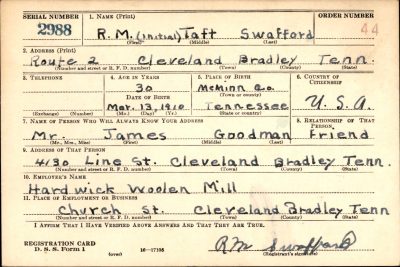 SERIAL NUMBER
1. NAME (Print)
ORDER NUMBER
2988
R.M. (initial) Taft Swafford
44
(First) (Middle) (Last)
2. ADDRESS (Print)
Route 2 Cleveland Bradley Tenn.
(Number and street or R. F. D. number) (Town) (County) (State)
3. TELEPHONE
4. AGE IN YEARS
5. PLACE OF BIRTH
6. COUNTRY OF CITIZENSHIP
30
McMinn Co.
DATE OF BIRTH
(Town or county)
Mar. 13, 1910
Tennessee
U.S.A.
(Exchange) (Number)
(Mo.) (Day) (Yr.)
(State or country)
7. NAME OF PERSON WHO WILL ALWAYS KNOW YOUR ADDRESS
8. RELATIONSHIP OF THAT PERSON
Mr. James Goodman Friend
(Mr., Mrs., Miss) (First) (Middle) (Last)
9. ADDRESS OF THAT PERSON
4130 Line St. Cleveland Bradley Tenn.
(Number and street or R. F. D. number) (Town) (County) (State)
10. EMPLOYER'S NAME
Hardwick Woolen Mill
11. PLACE OF EMPLOYMENT OR BUSINESS
Church St. Cleveland Bradley Tenn
(Number and street or R. F. D. number) (Town) (County) (State)
I AFFIRM THAT I HAVE VERIFIED ABOVE ANSWERS AND THAT THEY ARE TRUE.
REGISTRATION CARD
D. S. S. Form 1
(over)
16—17105
RM Swafford
(Registrant's signature)